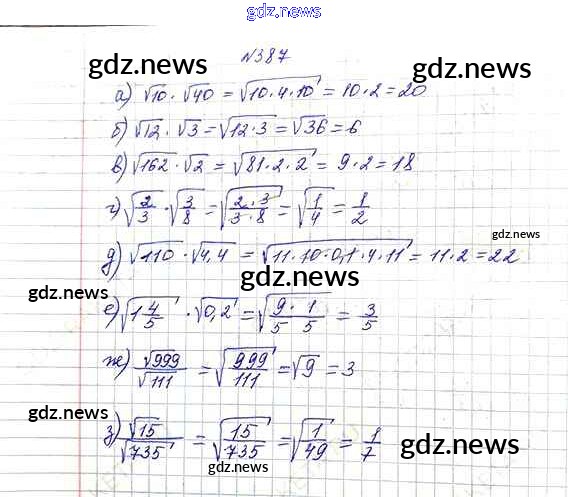 gdz.news
№387
gdz.news gdz.news
а) √10 · √40 = √(10·4·10) = 10·2 = 20
б) √12 · √3 = √(12·3) = √36 = 6
в) √162 · √2 = √(81·2·2) = 9·2 = 18
г) √(2/3) · √(3/8) = √((2·3)/(3·8)) = √(1/4) = 1/2
gdz.news
д) √110 · √4,4 = √(11·10·0,1·4·11) = 11·2 = 22
gdz.news
gdz.news
е) √(1 4/5) · √0,2 = √(9/5 · 1/5) = 3/5
ж) √999/√111 = √(999/111) = √9 = 3
gdz.news gdz.news
з) √15/√735 = √(15/735) = √(1/49) = 1/7
gdz.news
gdz.news